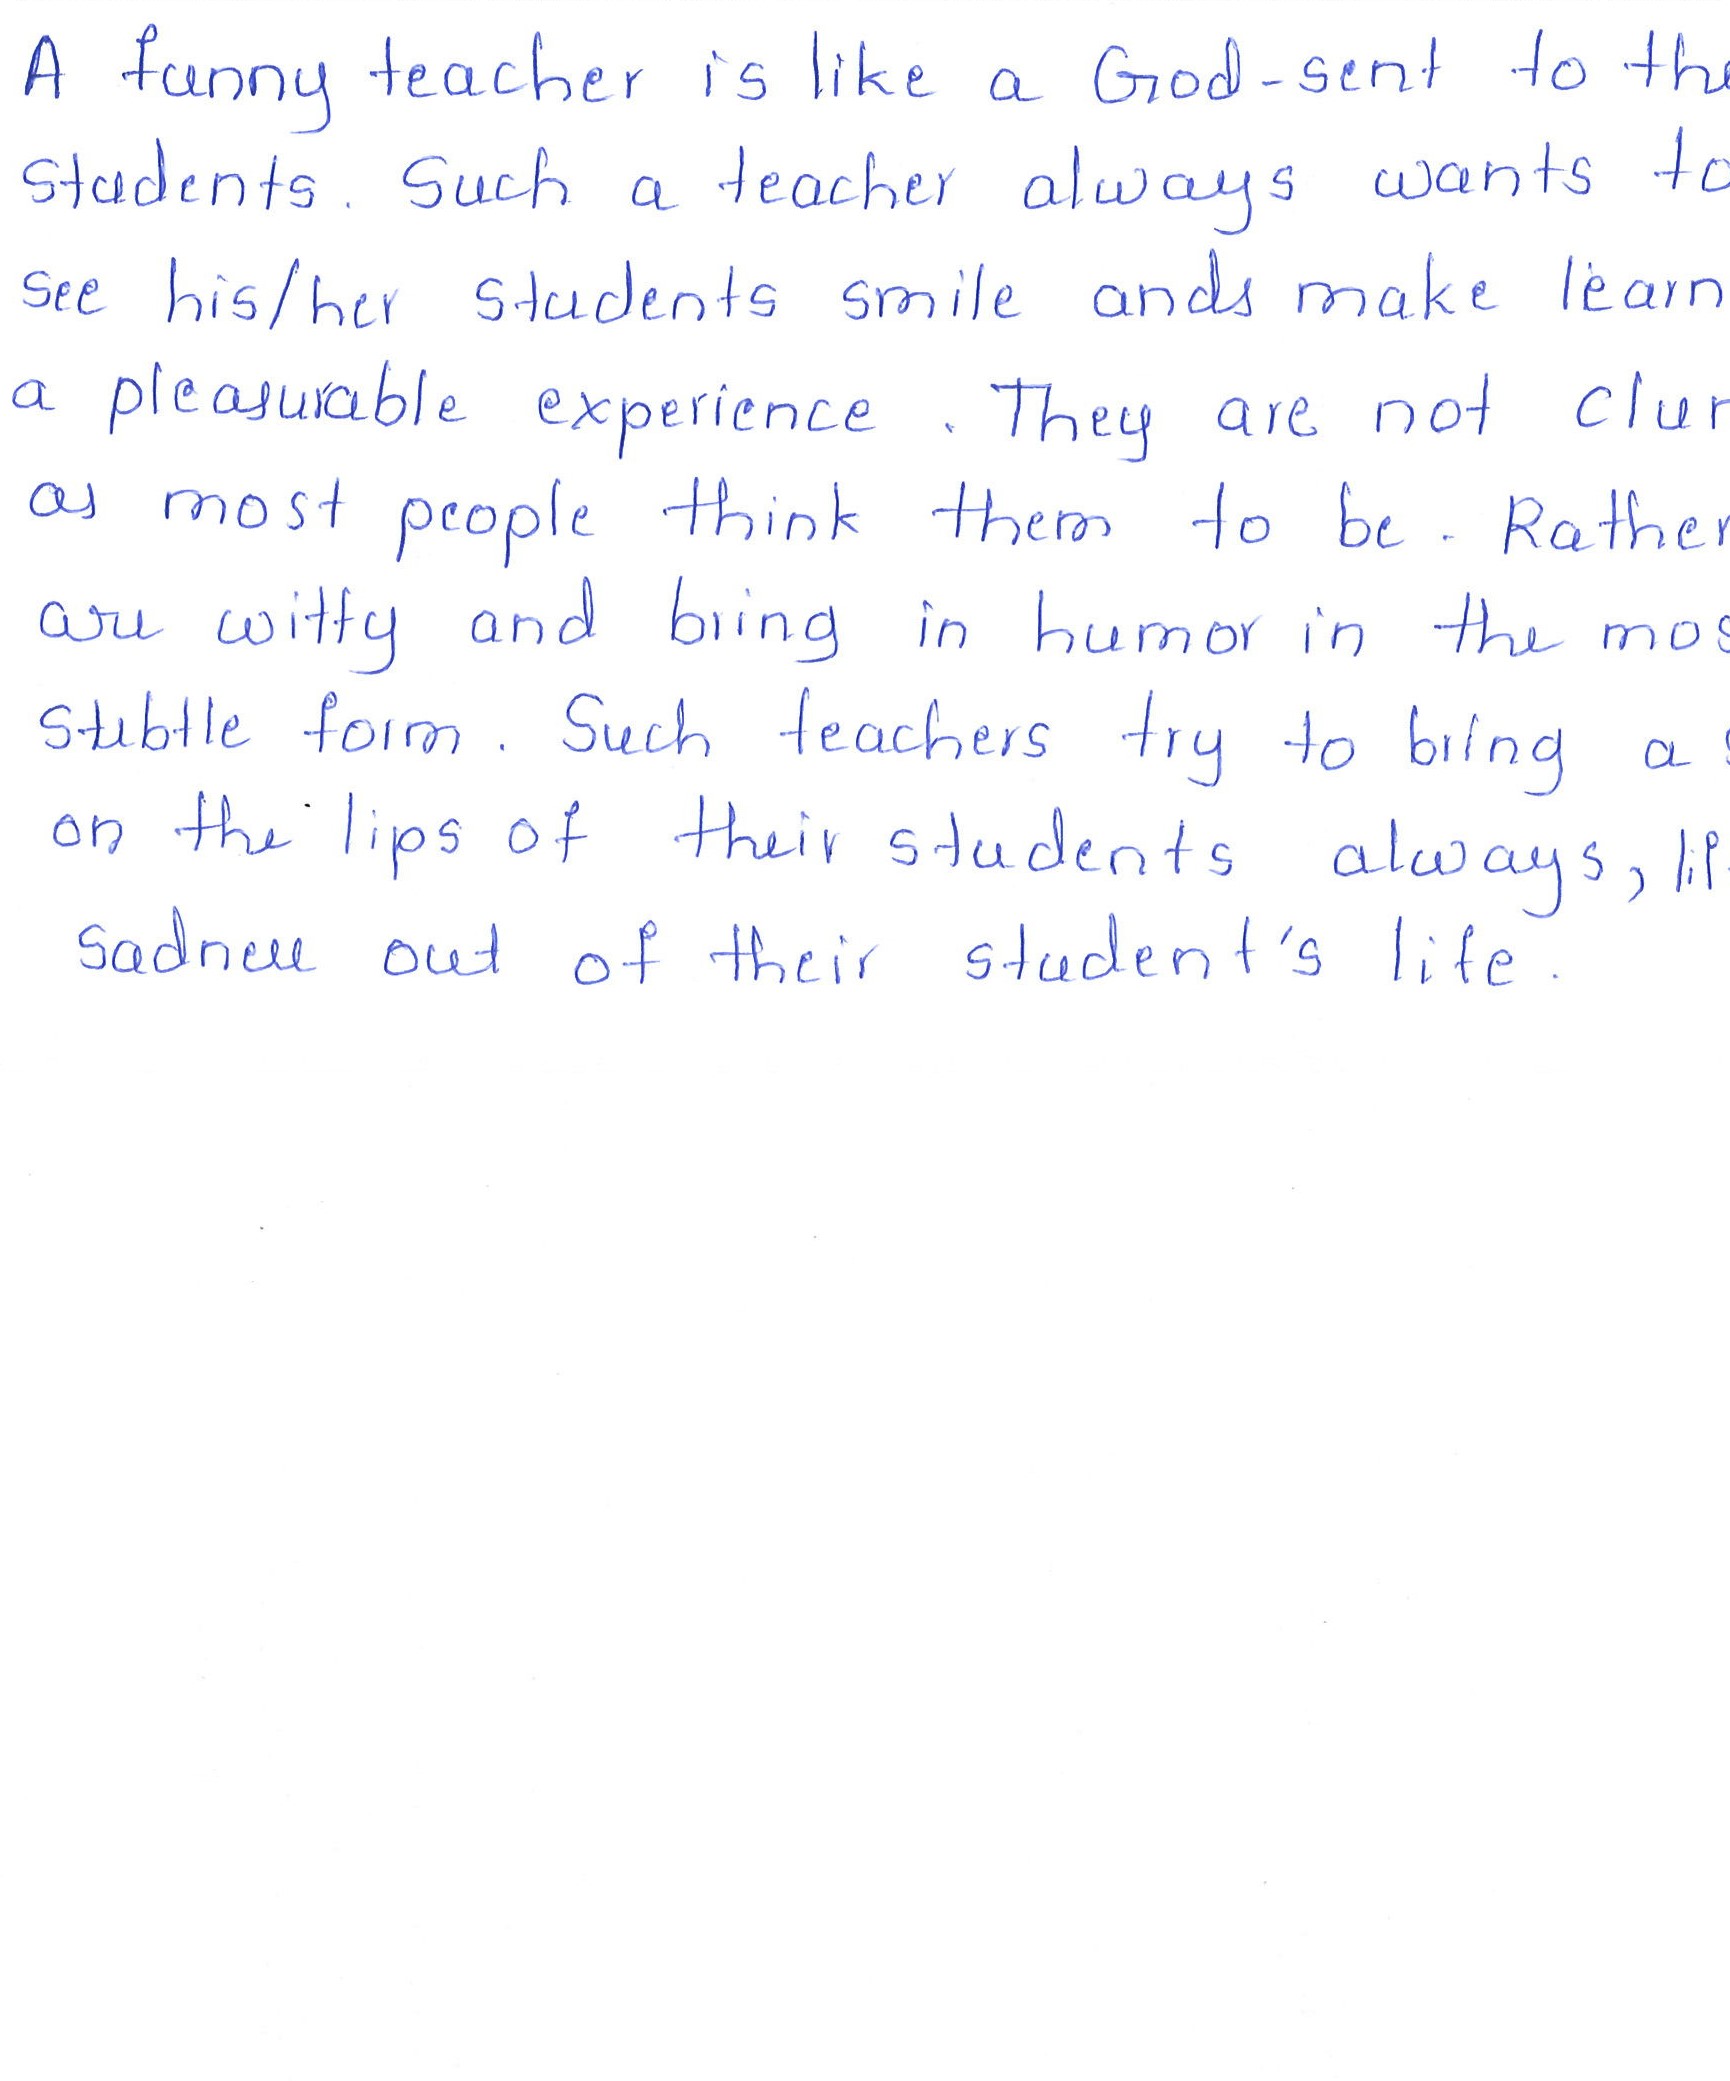 A funny teacher is like a God-sent to the
students. Such a teacher always wants to
see his/her students smile ands make learn
a pleasurable experience. They are not
as most people think them to be. Rather
are witty and bring in humor in the mos
subtle form. Such teachers try to bring a
on the lips of their students always,
sadness out of their student's life.